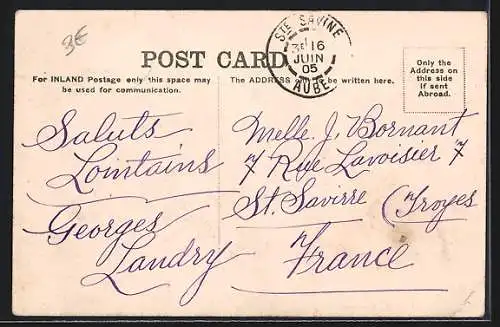 3€
POST CARD
STE SAVINE
3E 16
JUIN
05
AUBE
Only the
Address on
this side
if sent
Abroad.
For INLAND Postage only this space may
be used for communication.
The ADDRESS be written here.
Saluts
Lointains
Georges
Landry
Melle. J. Bornant
7 Rue Lavoisier 7
St. Savirre (Troyes
France